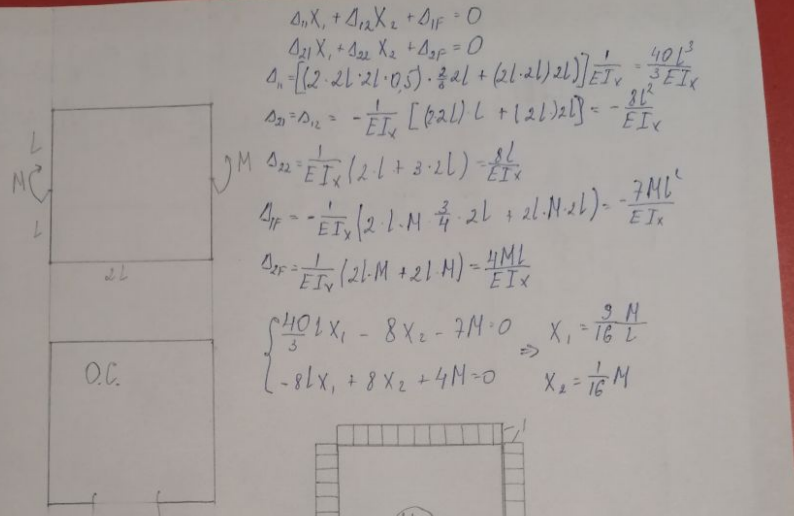 Δ₁₁X₁ + Δ₁₂X₂ + Δ₁F = 0
Δ₂₁X₁ + Δ₂₂X₂ + Δ₂F = 0
Δ₁₁ = [(2·2l·2l·0,5)·2/3 2l + (2l·2l)2l] 1/EIx = 40l³/3EIx
Δ₂₁ = Δ₁₂ = -1/EIx [(2·2l)·l + (2l)2l] = -8l²/EIx
Δ₂₂ = 1/EIx (2·l + 3·2l) = 8l/EIx
Δ₁F = -1/EIx (2·l·M·3/4·2l + 2l·M·2l) = -7Ml²/EIx
Δ₂F = 1/EIx (2l·M + 2l·M) = 4Ml/EIx
{ 40/3 lX₁ - 8X₂ - 7M = 0 ⇒ X₁ = 9/16 M/l
-8lX₁ + 8X₂ + 4M = 0 X₂ = 1/16 M
L
M M
L
2L
О.С.
1